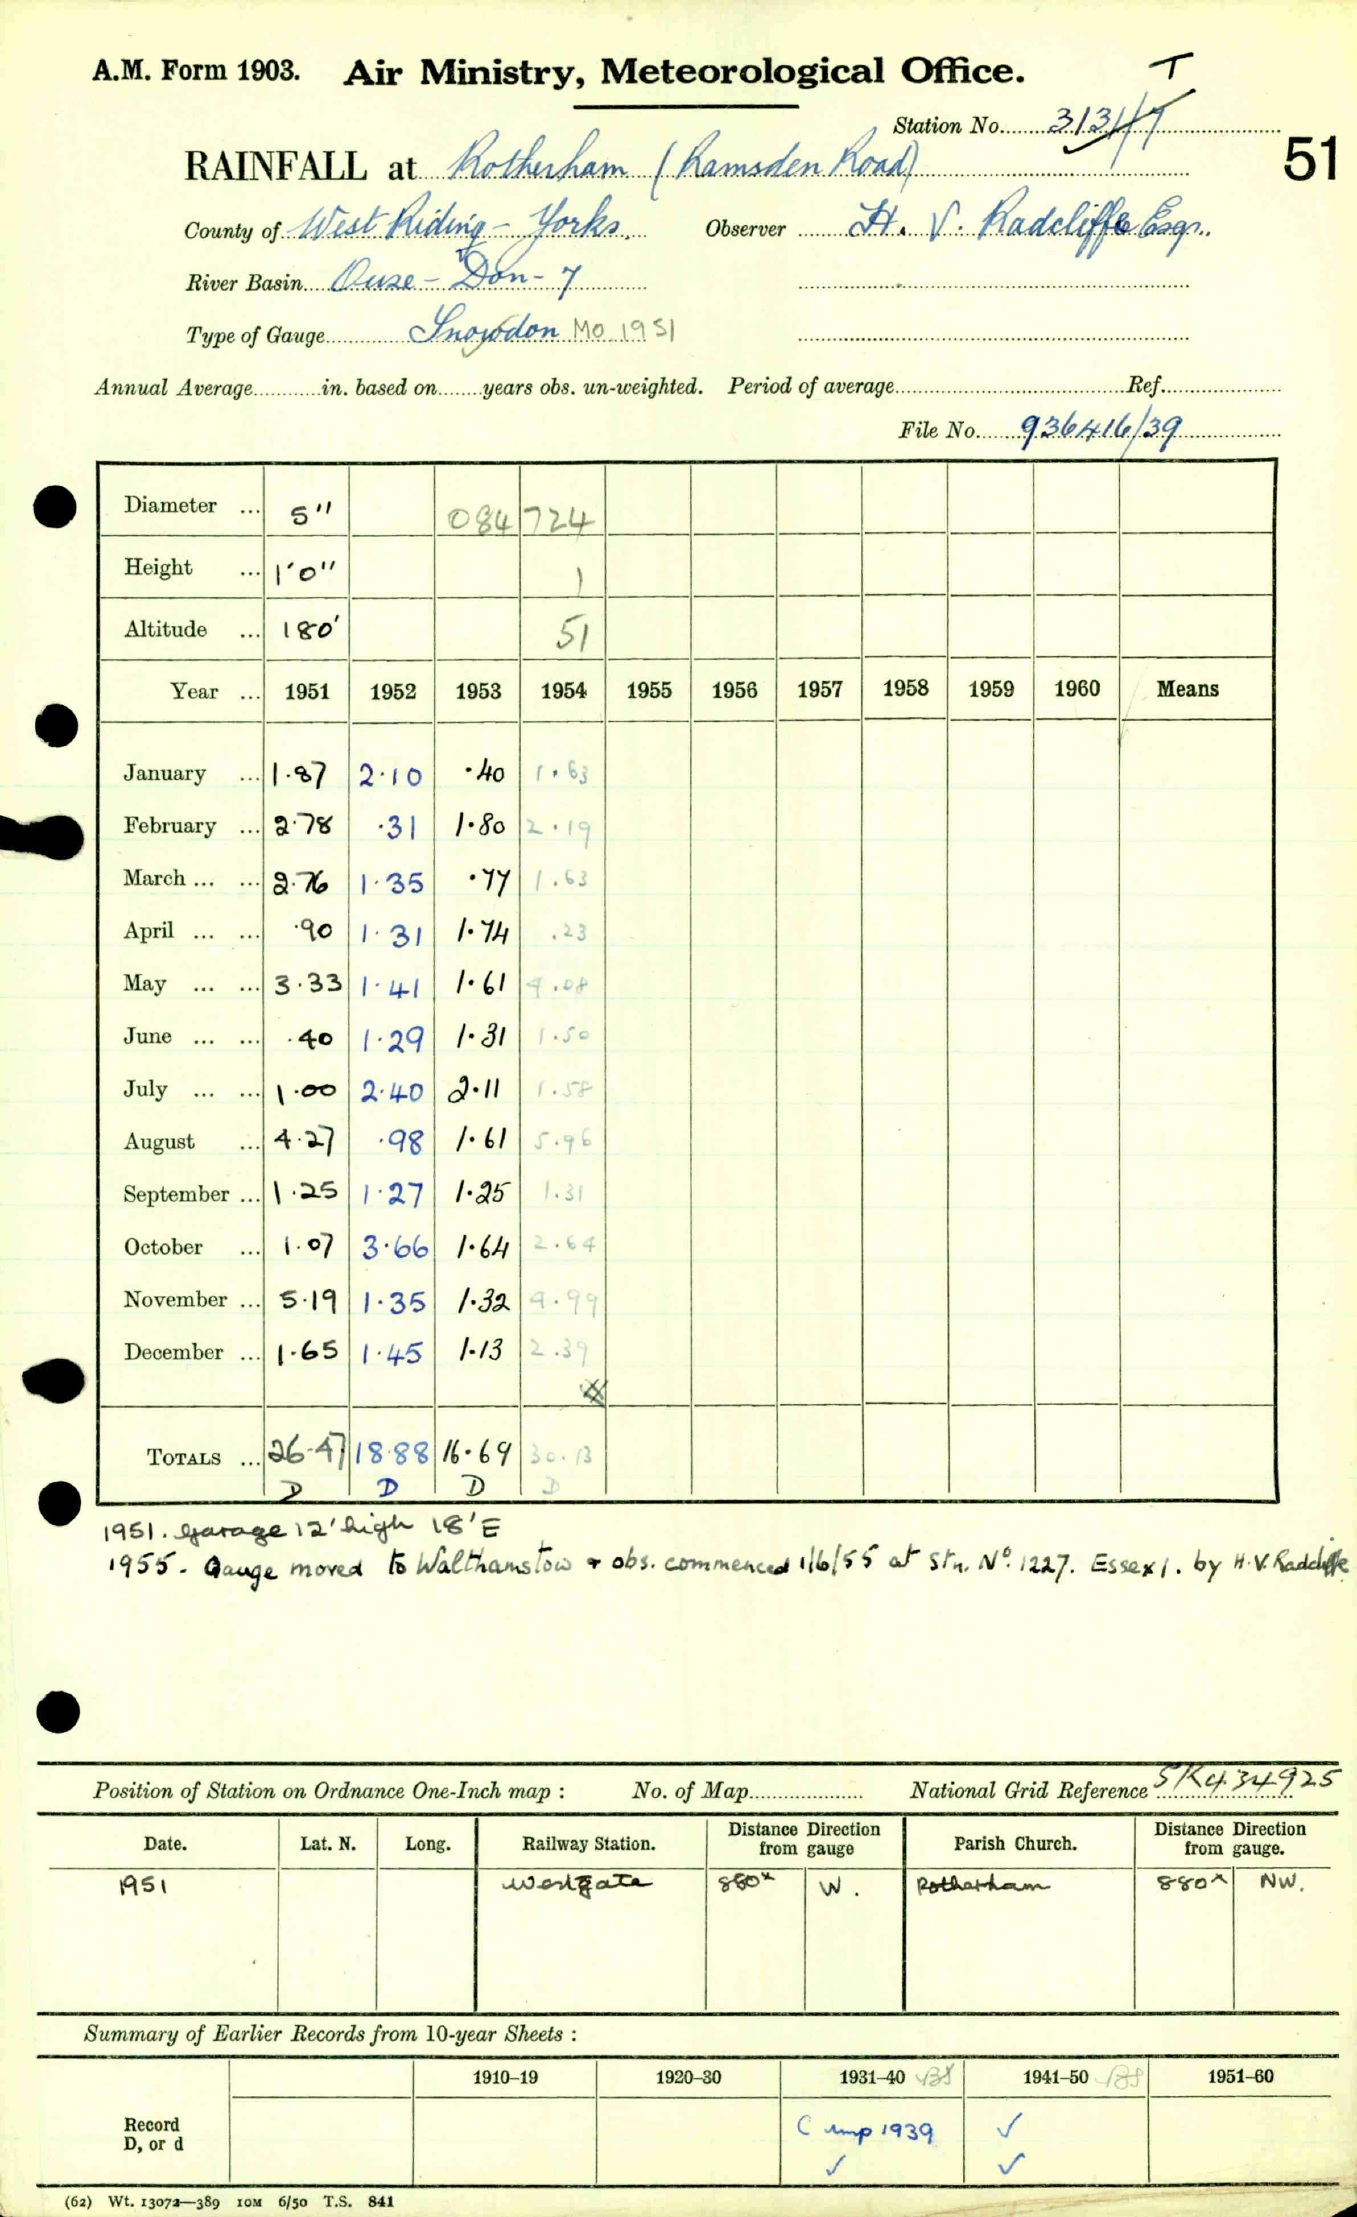 A.M. Form 1903. Air Ministry, Meteorological Office.
T
Station No. 3131/7
51
RAINFALL at Rotherham (Ramsden Road)
County of West Riding - Yorks. Observer H. V. Radcliffe Esqr..
River Basin Ouse - Don - 7
Type of Gauge Snowdon MO 1951
Annual Average in. based on years obs. un-weighted. Period of average Ref.
File No. 936416/39
Diameter ... 5" 084 724
Height ... 1'0" 1
Altitude ... 180' 51
Year ... 1951 1952 1953 1954 1955 1956 1957 1958 1959 1960 Means
January ... 1.87 2.10 .40 1.63
February ... 2.78 .31 1.80 2.19
March ... ... 2.76 1.35 .77 1.63
April ... ... .90 1.31 1.74 .23
May ... ... 3.33 1.41 1.61 4.08
June ... ... .40 1.29 1.31 1.50
July ... ... 1.00 2.40 2.11 1.58
August ... 4.27 .98 1.61 5.96
September ... 1.25 1.27 1.25 1.31
October ... 1.07 3.66 1.64 2.64
November ... 5.19 1.35 1.32 4.99
December ... 1.65 1.45 1.13 2.39
TOTALS ... 26.47 18.88 16.69 30.13
D D D D
1951. Garage 12' high 18' E
1955. Gauge moved to Walthamstow & obs. commenced 1/6/55 at Stn. No. 1227. Essex 1. by H.V. Radcliffe
Position of Station on Ordnance One-Inch map : No. of Map National Grid Reference SK434925
Date. Lat. N. Long. Railway Station. Distance from Direction gauge Parish Church. Distance from Direction gauge.
1951 Westgate 880x W. Rotherham 880x NW.
Summary of Earlier Records from 10-year Sheets :
1910–19 1920–30 1931–40 1941–50 1951–60
Record
D, or d
C imp 1939 ✓
✓ ✓
(62) Wt. 13072—389 10M 6/50 T.S. 841